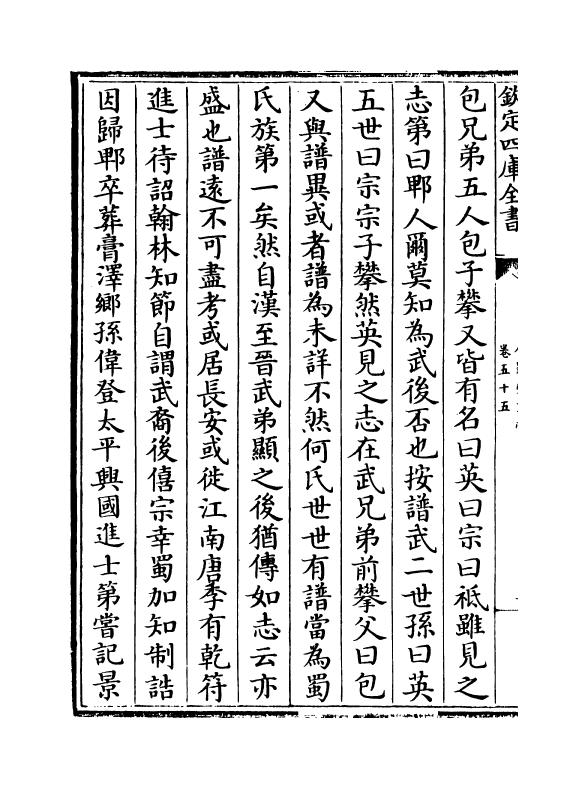 欽定四庫全書
卷五十五
包兄弟五人包子攀又皆有名曰英曰宗曰祗雖見之
志第曰郫人爾莫知為武後否也按譜武二世孫曰英
五世曰宗宗子攀然英見之志在武兄弟前攀父曰包
又與譜異或者譜為未詳不然何氏世世有譜當為蜀
氏族第一矣然自漢至晉武弟顯之後猶傳如志云亦
盛也譜遠不可盡考或居長安或徙江南唐季有乾符
進士待詔翰林知節自謂武裔後僖宗幸蜀加知制誥
因歸郫卒葬膏澤鄉孫偉登太平興國進士第嘗記景